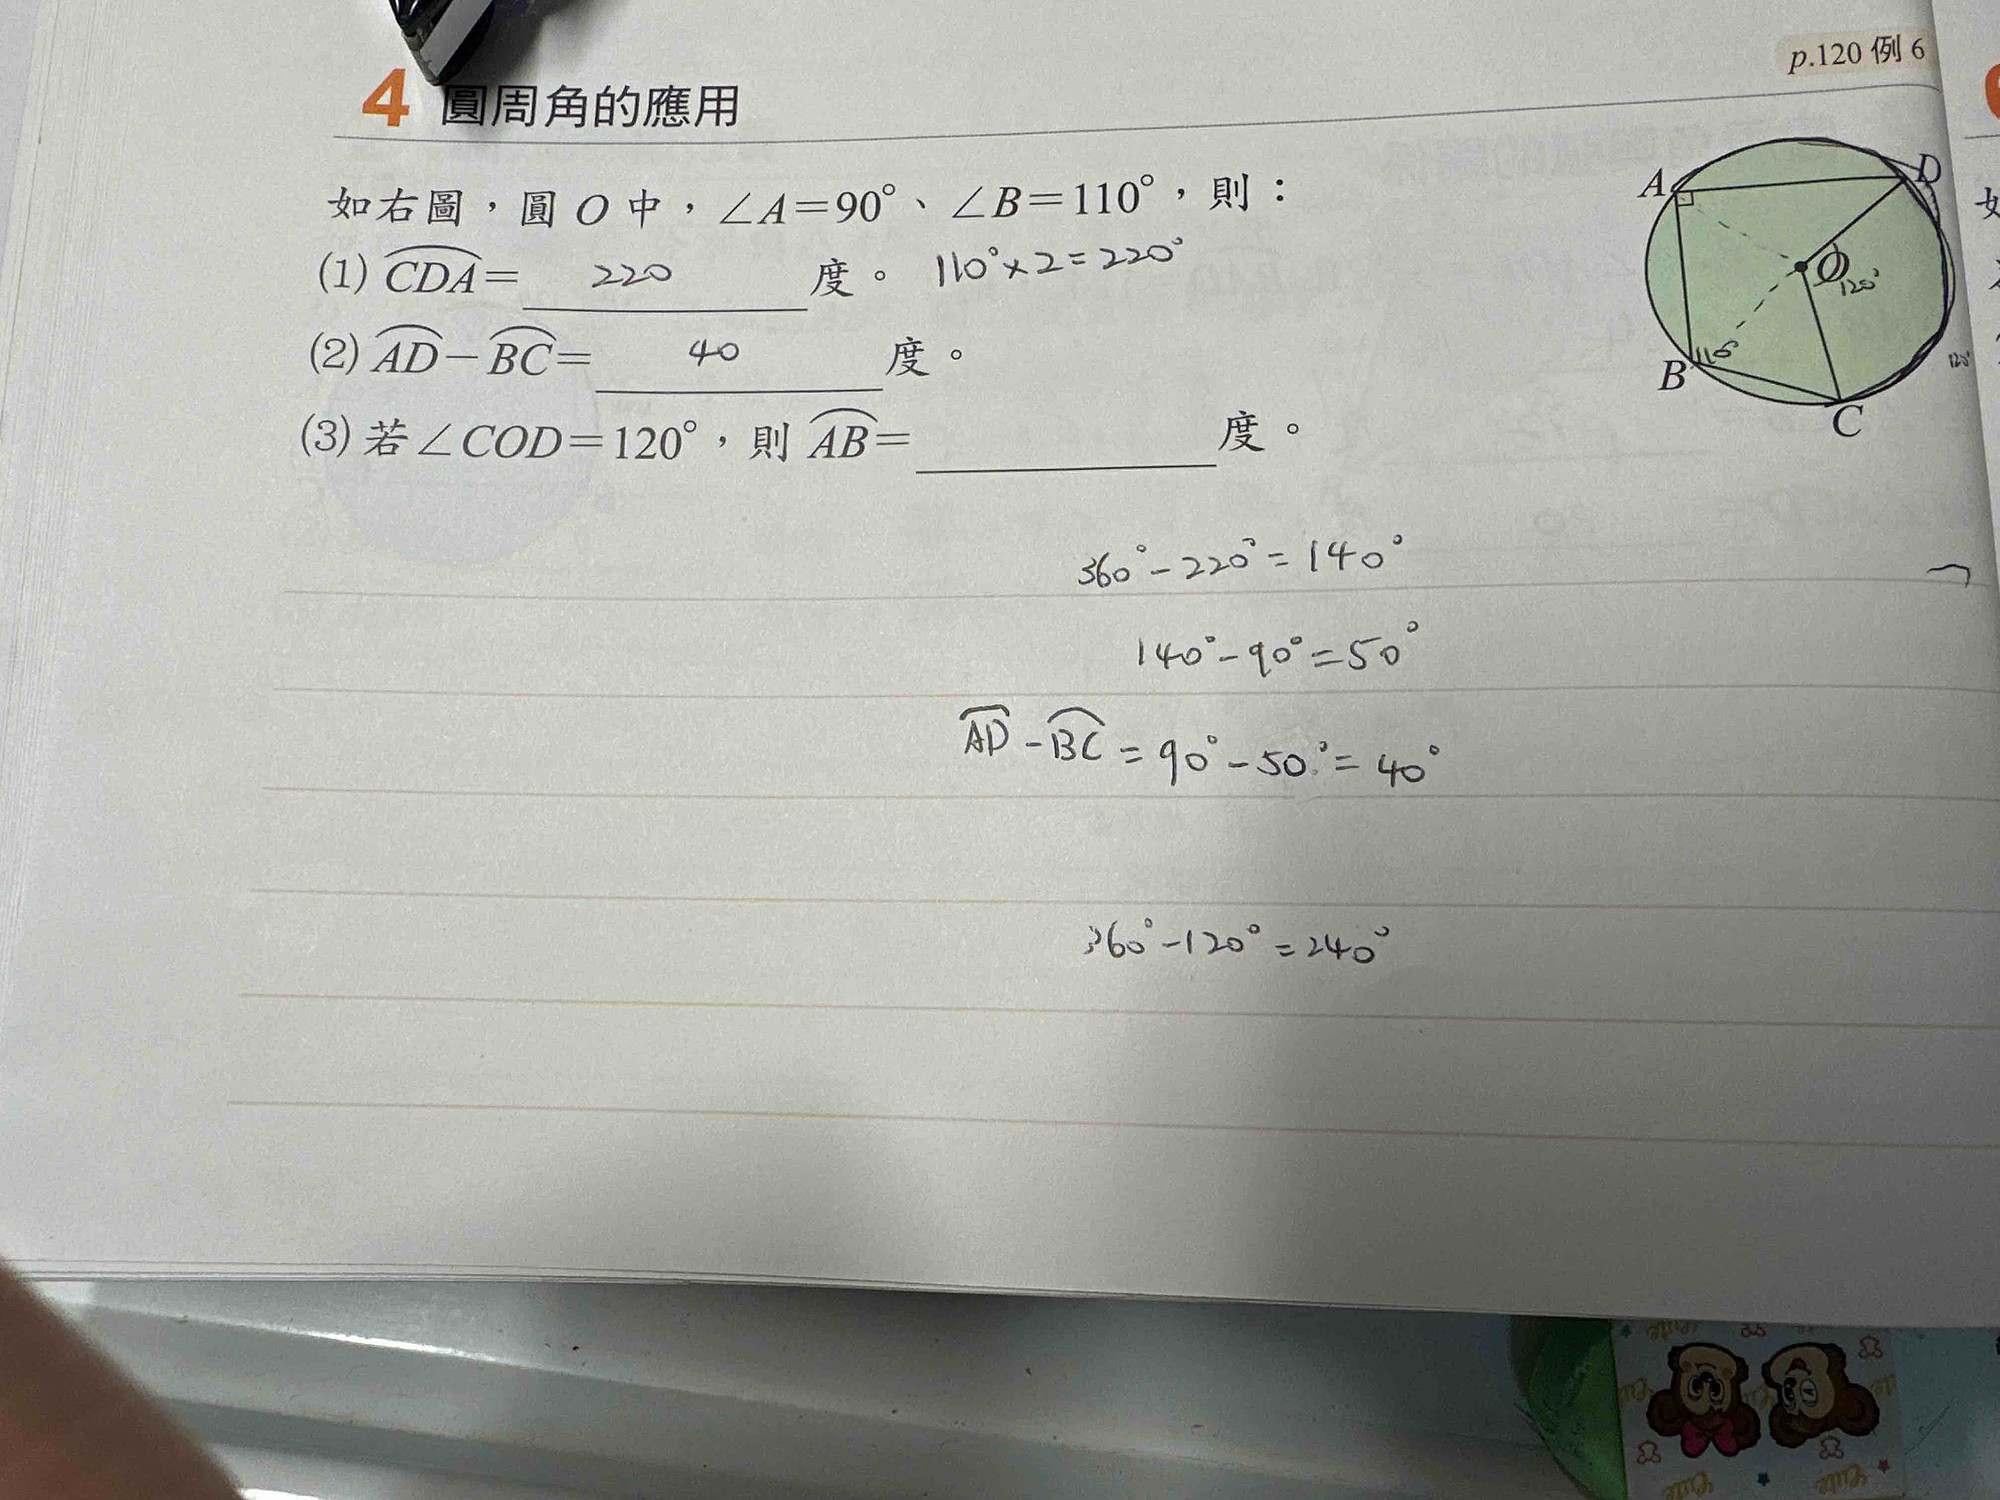 p.120 例 6
4 圓周角的應用
如右圖，圓 O 中，∠A＝90°、∠B＝110°，則：
(1) CDA＝ 220 度。 110°×2=220°
(2) AD－BC＝ 40 度。
(3) 若∠COD＝120°，則 AB＝ 度。
A
D
O
120°
B
110°
C
120°
360°-220°=140°
140°-90°=50°
AD-BC=90°-50°=40°
360°-120°=240°
Cute
Cute
Cute